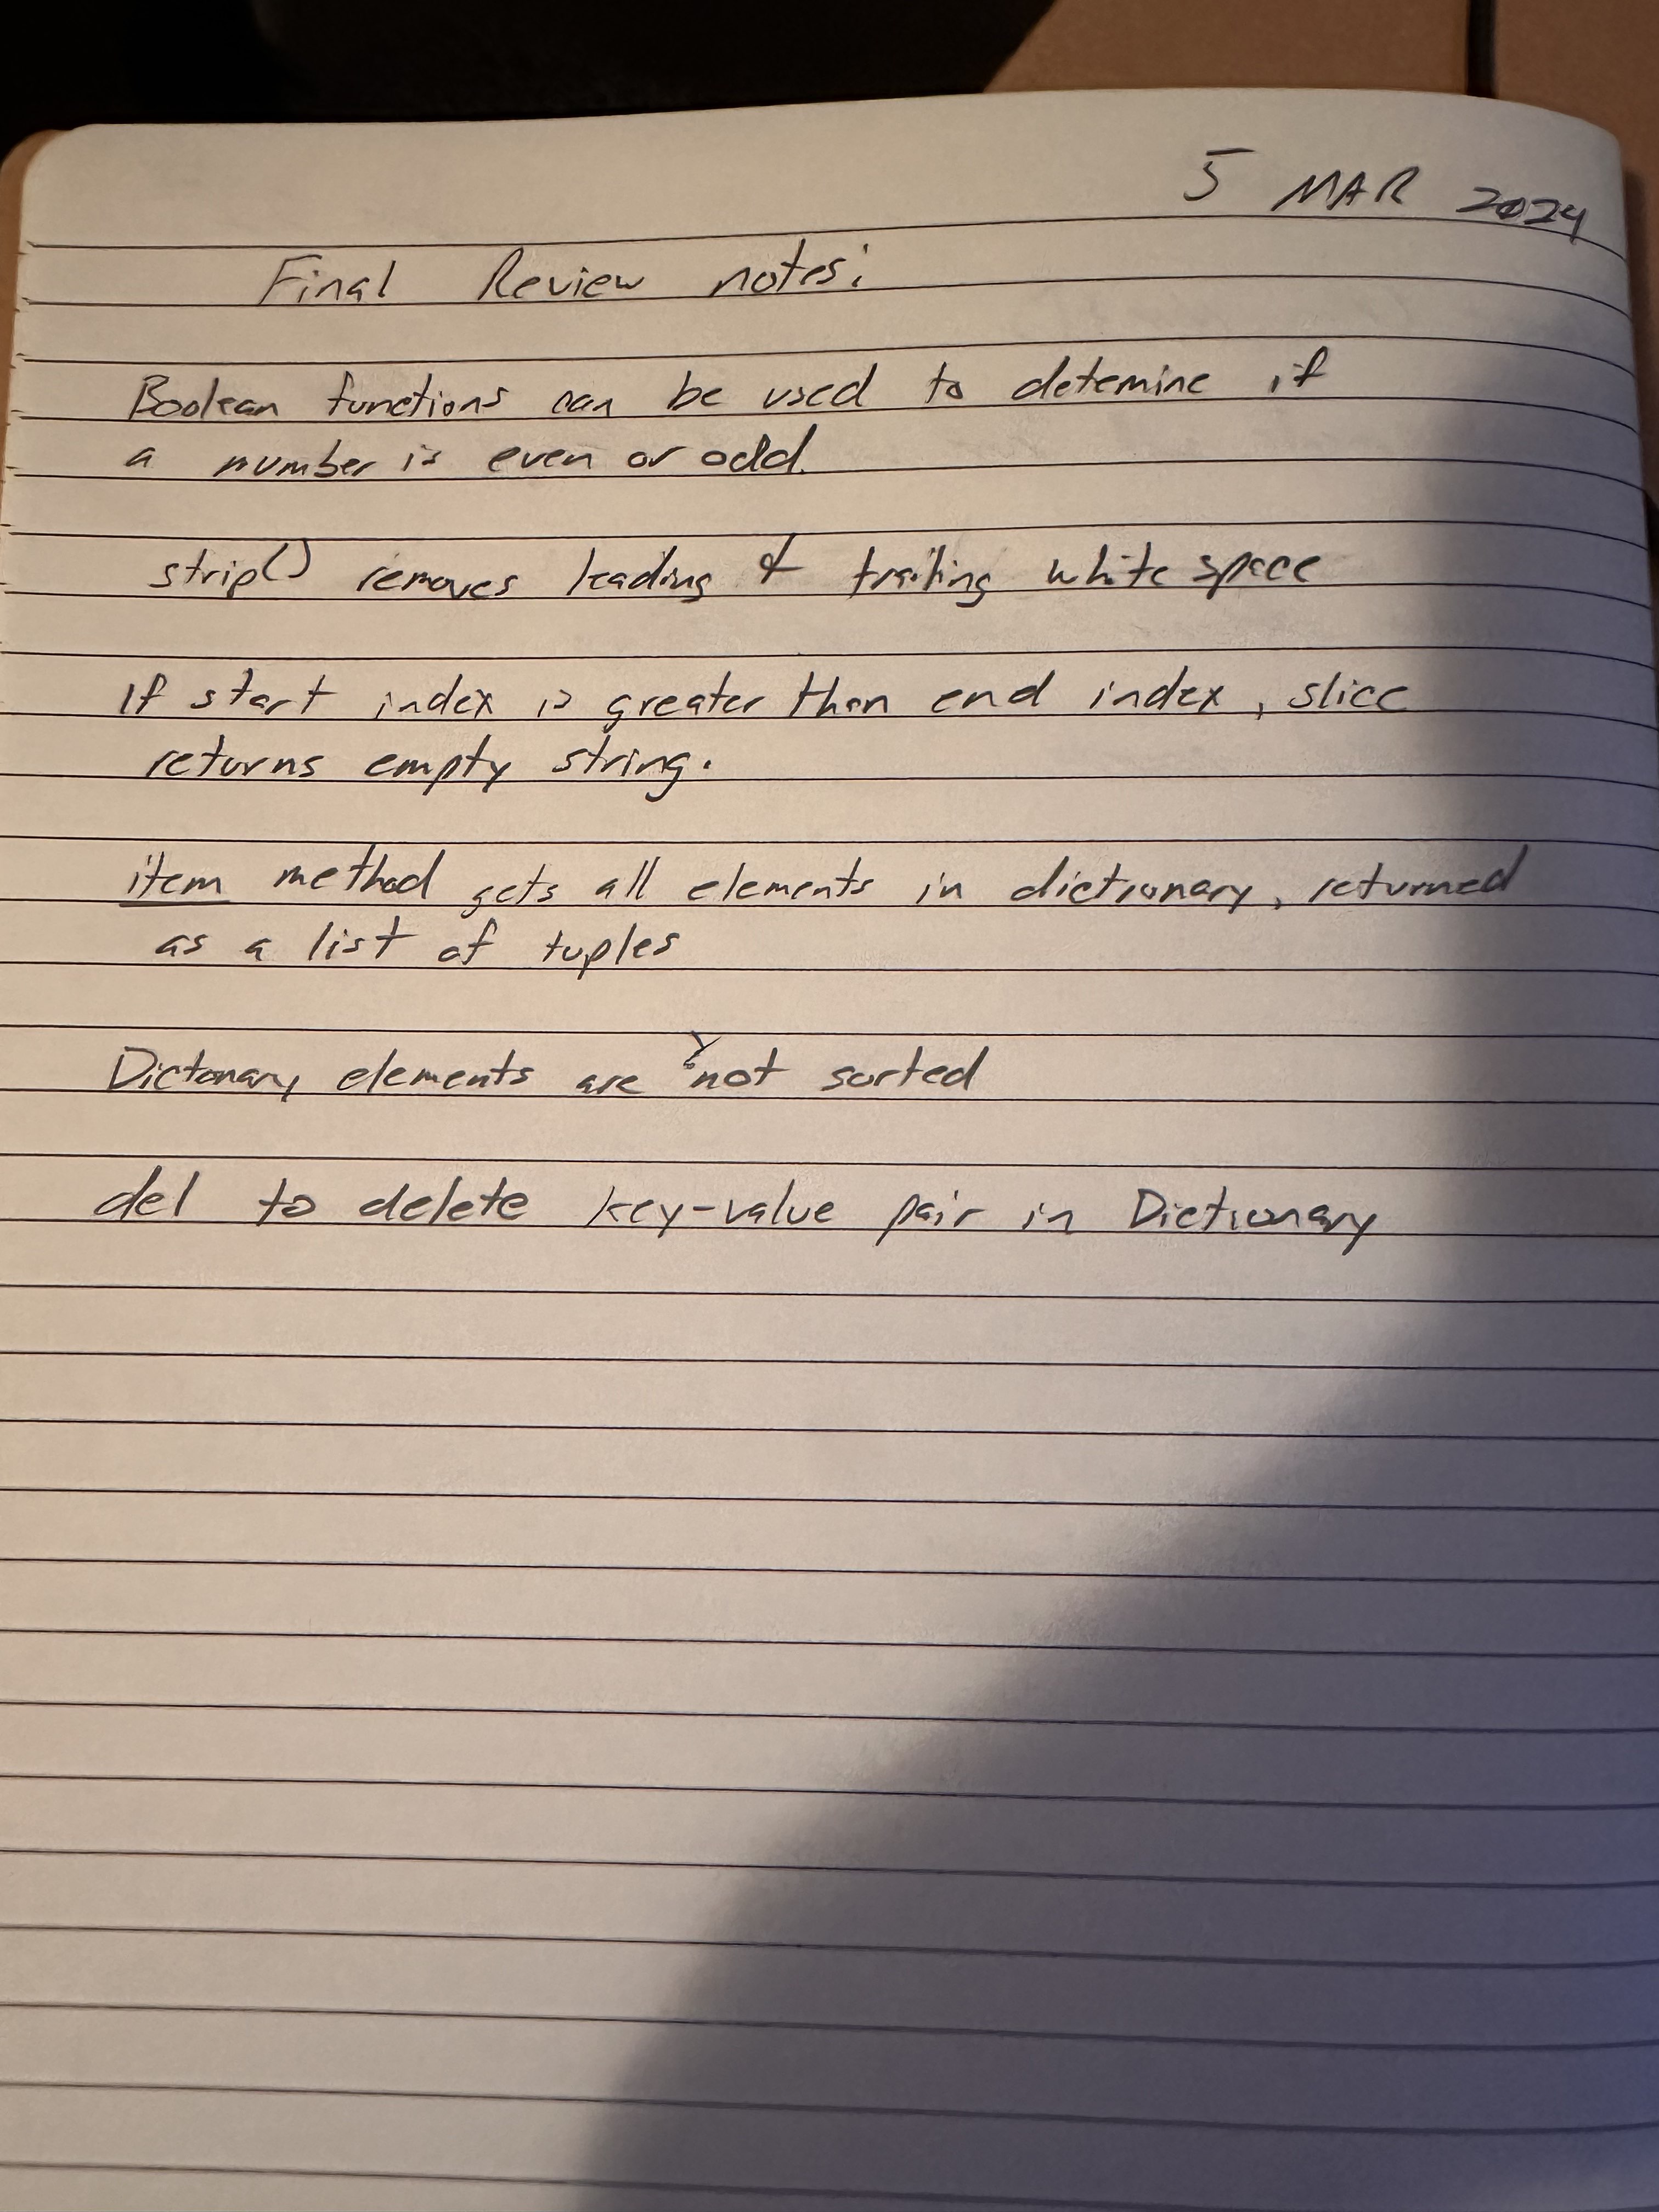 5 MAR 2024
Final Review notes:
Boolean functions can be used to detemine if
a number is even or odd.
strip() removes leading & trailing white space
If start index is greater than end index, slice
returns empty string.
item method gets all elements in dictionary, returned
as a list of tuples
Dictonary elements are not sorted
del to delete key-value pair in Dictionary